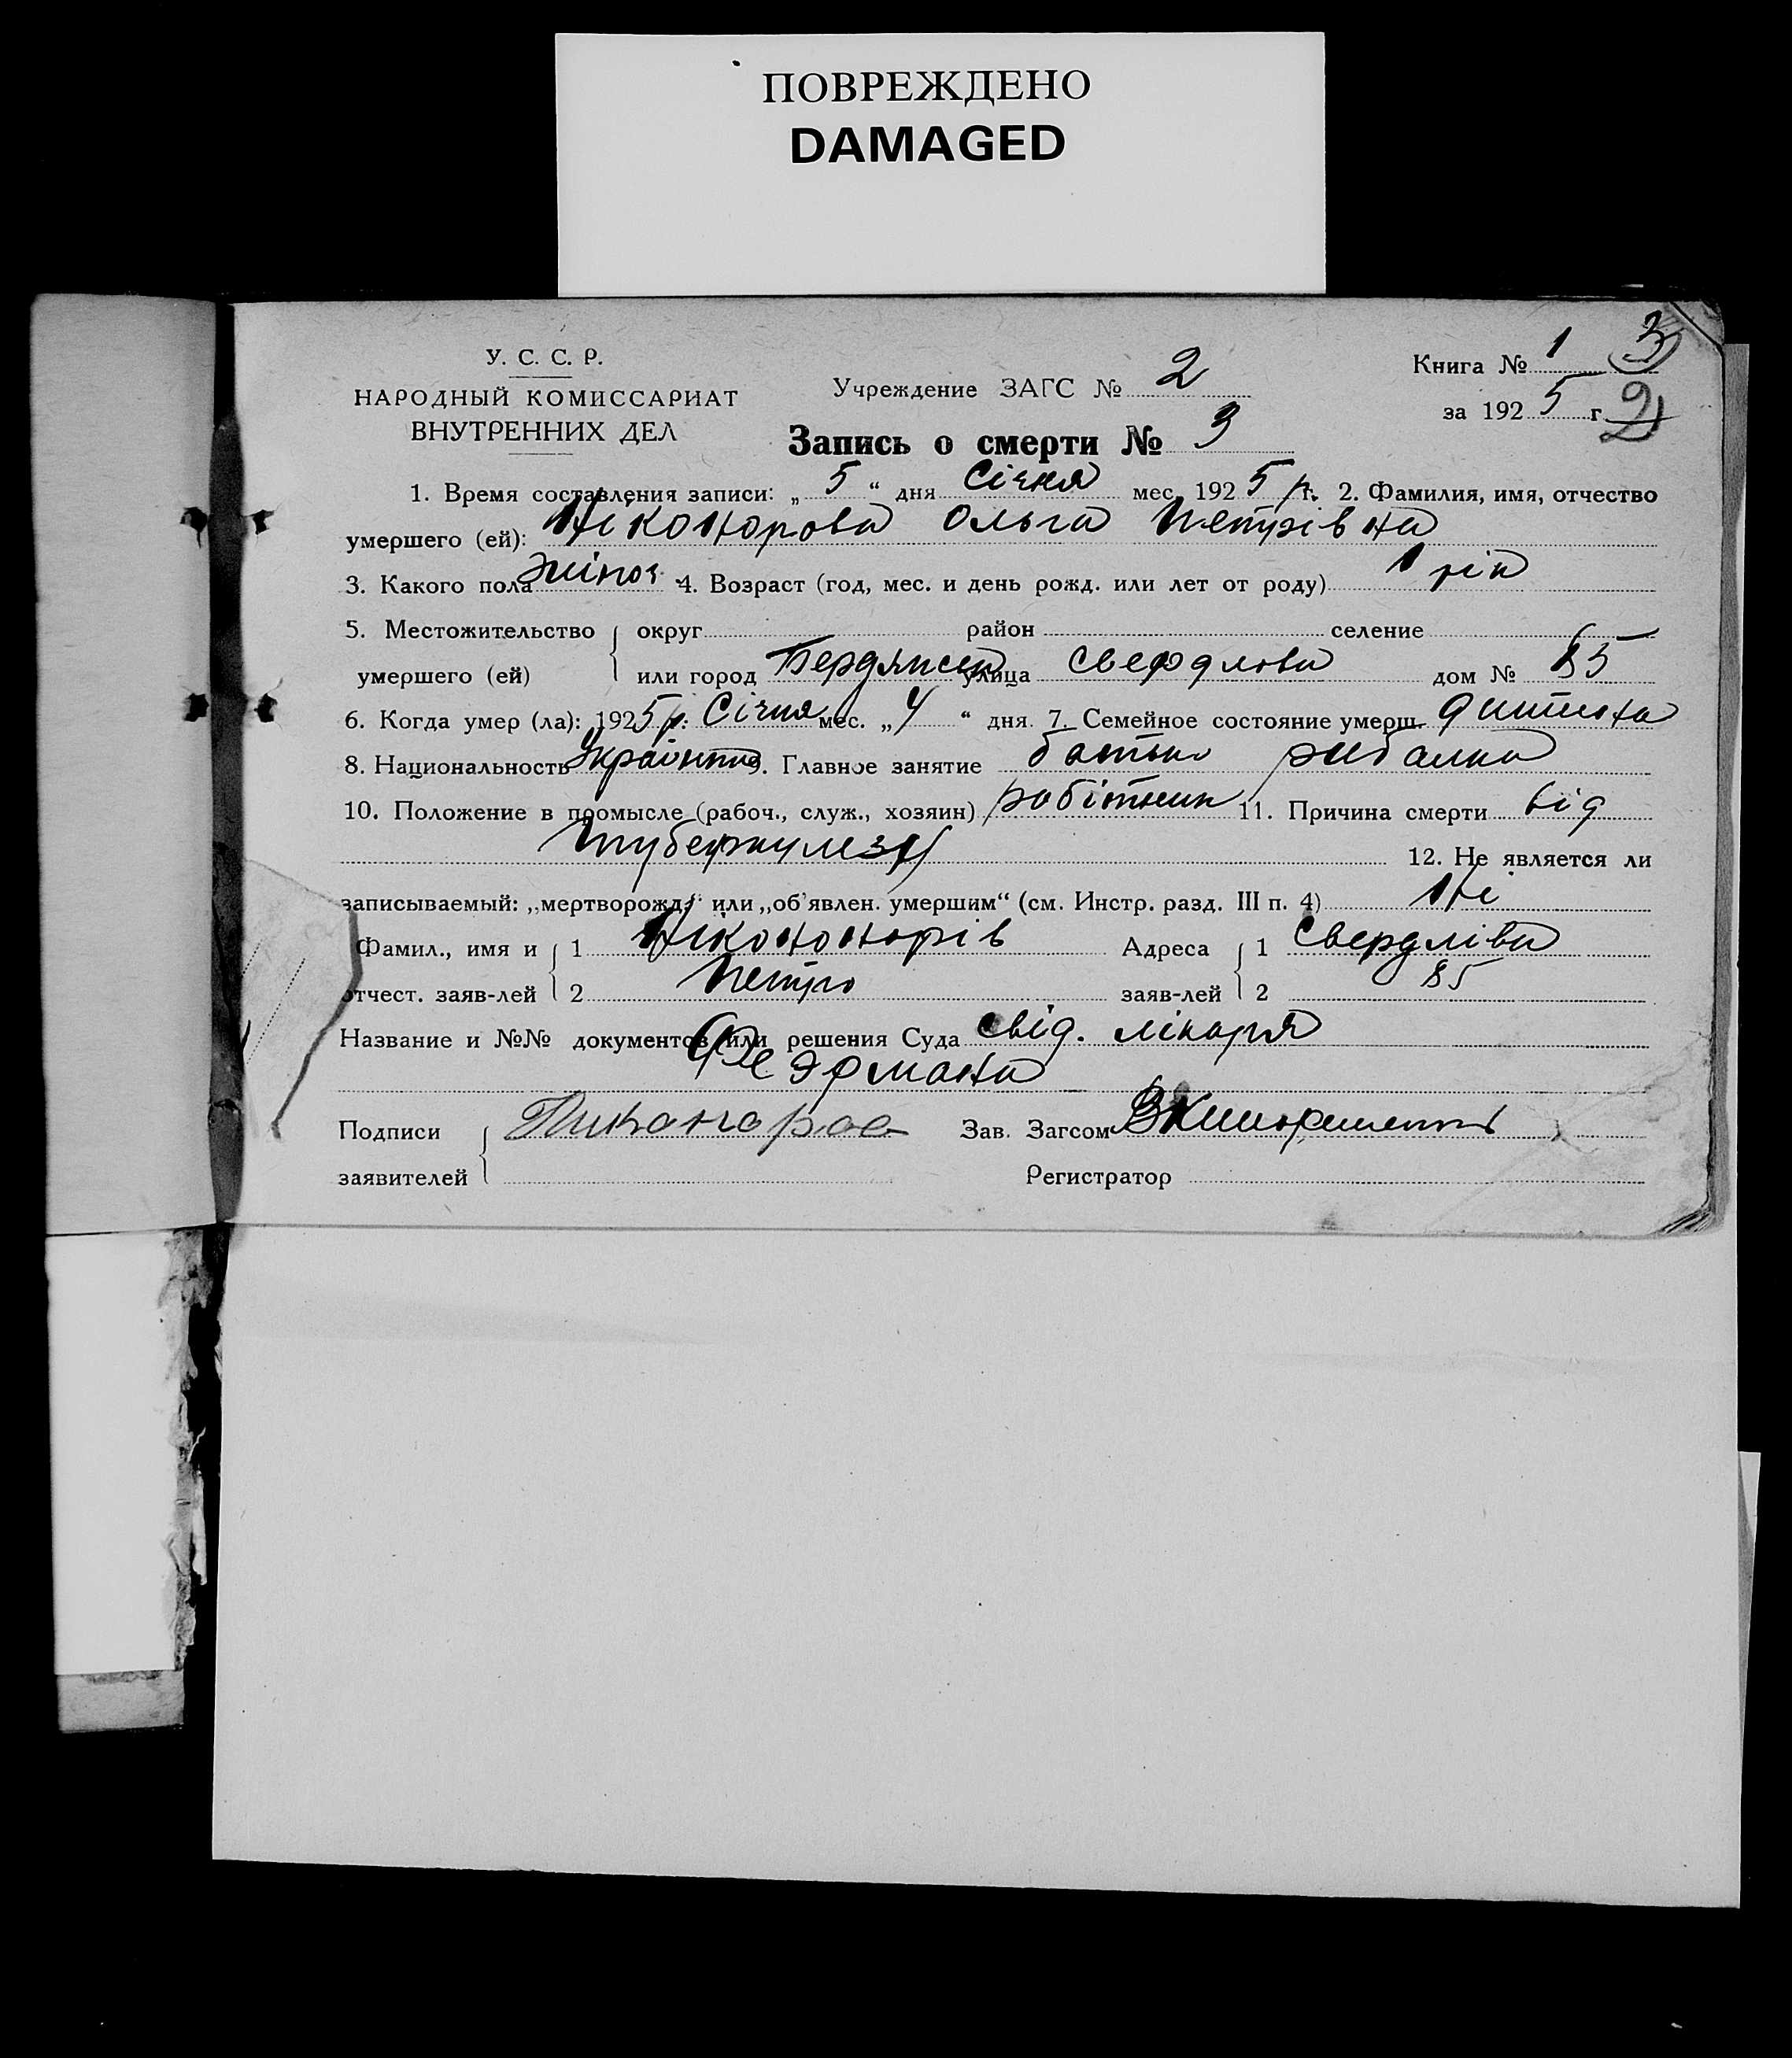 ПОВРЕЖДЕНО
DAMAGED
У. С. С. Р.
НАРОДНЫЙ КОМИССАРИАТ
ВНУТРЕННИХ ДЕЛ
Учреждение ЗАГС № 2
Книга № 1 3
за 1925 г. 2
Запись о смерти № 3
1. Время составления записи: „5“ дня Січня мес. 1925 р. г. 2. Фамилия, имя, отчество
умершего (ей): Ніконорова Ольга Петрівна
3. Какого пола жіноч. 4. Возраст (год, мес. и день рожд. или лет от роду) 1 рік
5. Местожительство округ район селение
умершего (ей) или город Бердянськ улица Свердлова дом № 85
6. Когда умер (ла): 1925 р. Січня мес. „4“ дня. 7. Семейное состояние умерш. дитина
8. Национальность 9. Главное занятие батько рибалка
10. Положение в промысле (рабоч., служ., хозяин) робітник 11. Причина смерти від
туберкульозу 12. Не является ли
записываемый: „мертворожд.“ или „об'явлен. умершим“ (см. Инстр. разд. III п. 4) Ні
Фамил., имя и 1 Ніконоров Адреса 1 Свердліва
отчест. заяв-лей 2 Петро заяв-лей 2 85
Название и №№ документов или решения Суда свід. лікаря
Подписи Никаноров Зав. Загсом
заявителей Регистратор